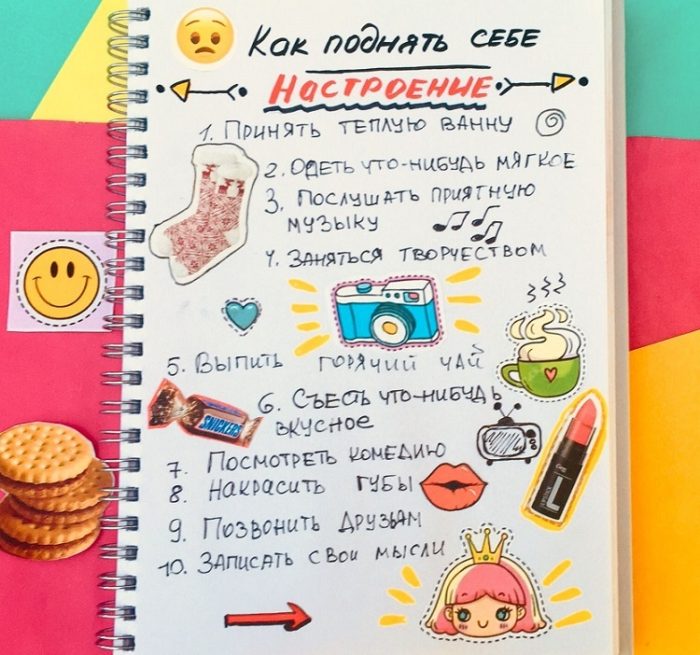 Как поднять СЕБЕ
НАСТРОЕНИЕ
1. Принять теплую ванну
2. Одеть что-нибудь мягкое
3. Послушать приятную
музыку
4. Заняться творчеством
5. Выпить горячий чай
6. Съесть что-нибудь
вкусное
SNICKERS
7. Посмотреть комедию
8. Накрасить губы
9. Позвонить друзьям
10. Записать свои мысли